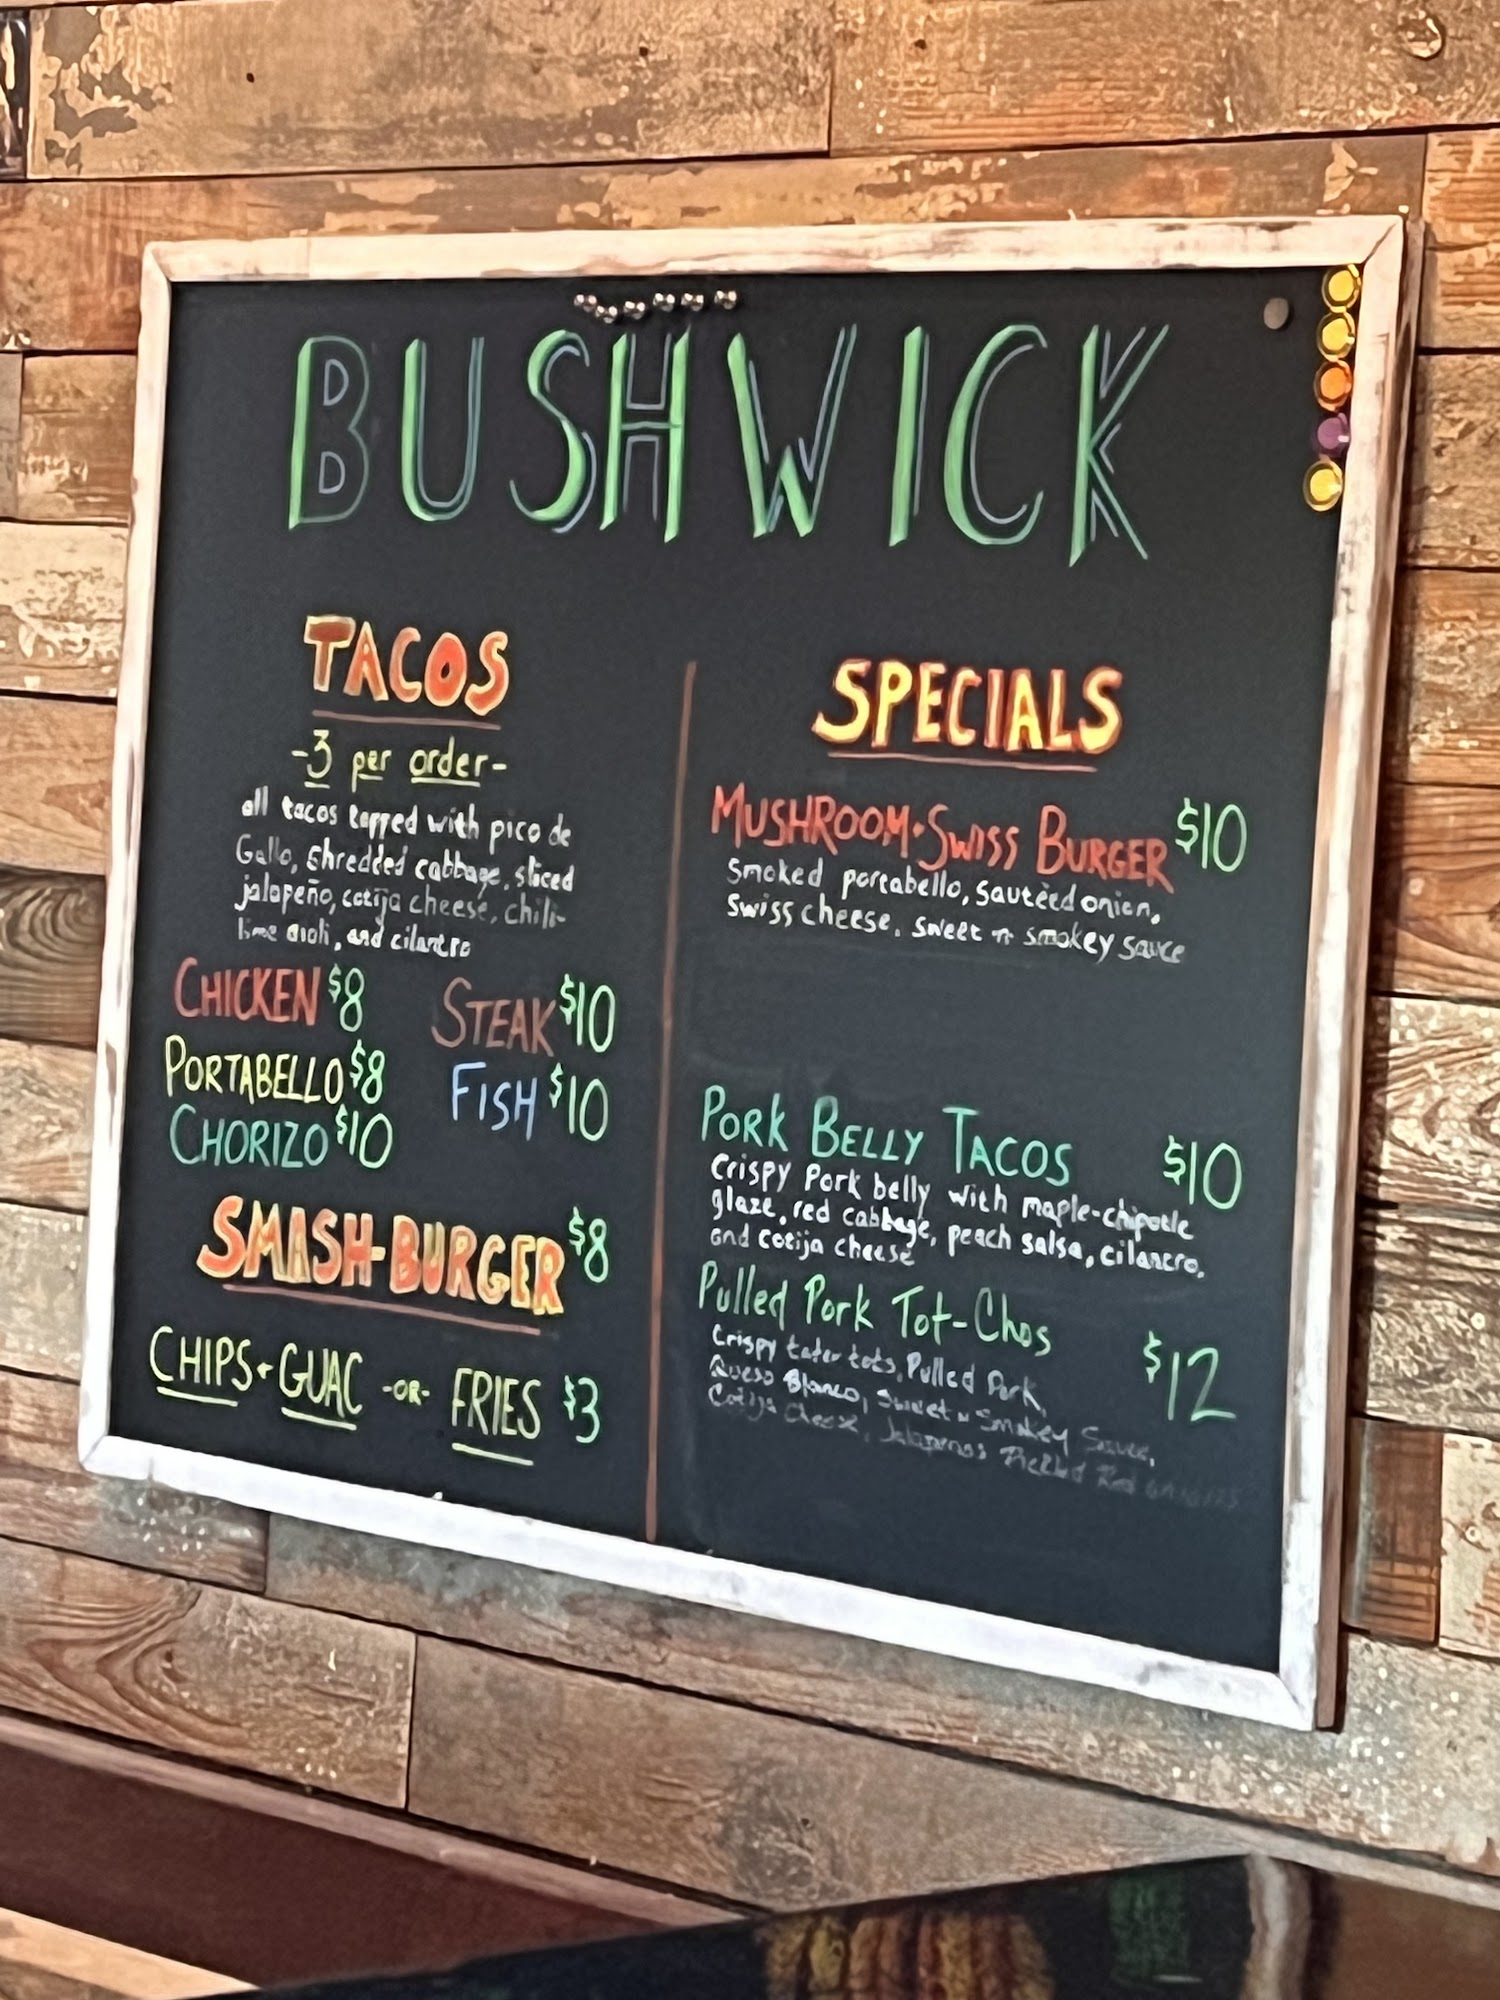 BUSHWICK
TACOS
-3 per order-
all tacos topped with pico de
Gallo, shredded cabbage, sliced
jalapeño, cotija cheese, chili-
lime aioli, and cilantro
CHICKEN $8
STEAK $10
PORTABELLO $8
FISH $10
CHORIZO $10
SMASH-BURGER $8
CHIPS + GUAC -OR- FRIES $3
SPECIALS
MUSHROOM•SWISS BURGER $10
Smoked portabello, sautèed onion,
Swiss cheese, sweet n smokey sauce
PORK BELLY TACOS $10
Crispy Pork belly with maple-chipotle
glaze, red cabbage, peach salsa, cilantro,
and cotija cheese
Pulled Pork Tot-Chos $12
Crispy tater tots, Pulled Pork,
Queso Blanco, Sweet n Smokey Sauce,
Cotija Cheese, Jalapenos Pickled Red